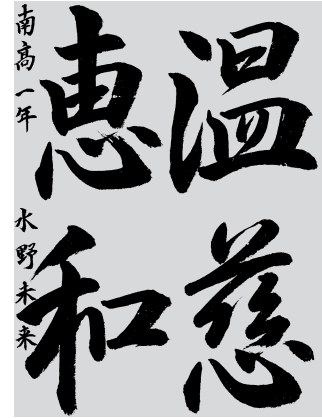 温慈
恵和
南高一年 水野未来